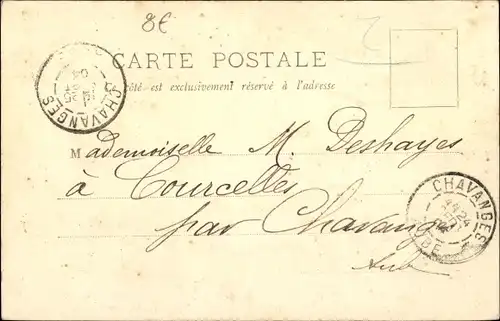 8€
CARTE POSTALE
côté est exclusivement réservé à l'adresse
CHAVANGES
25
04
Mademoiselle M. Deshayes
à Courcelles
par Chavanges
Aube
CHAVANGES
24
AUBE